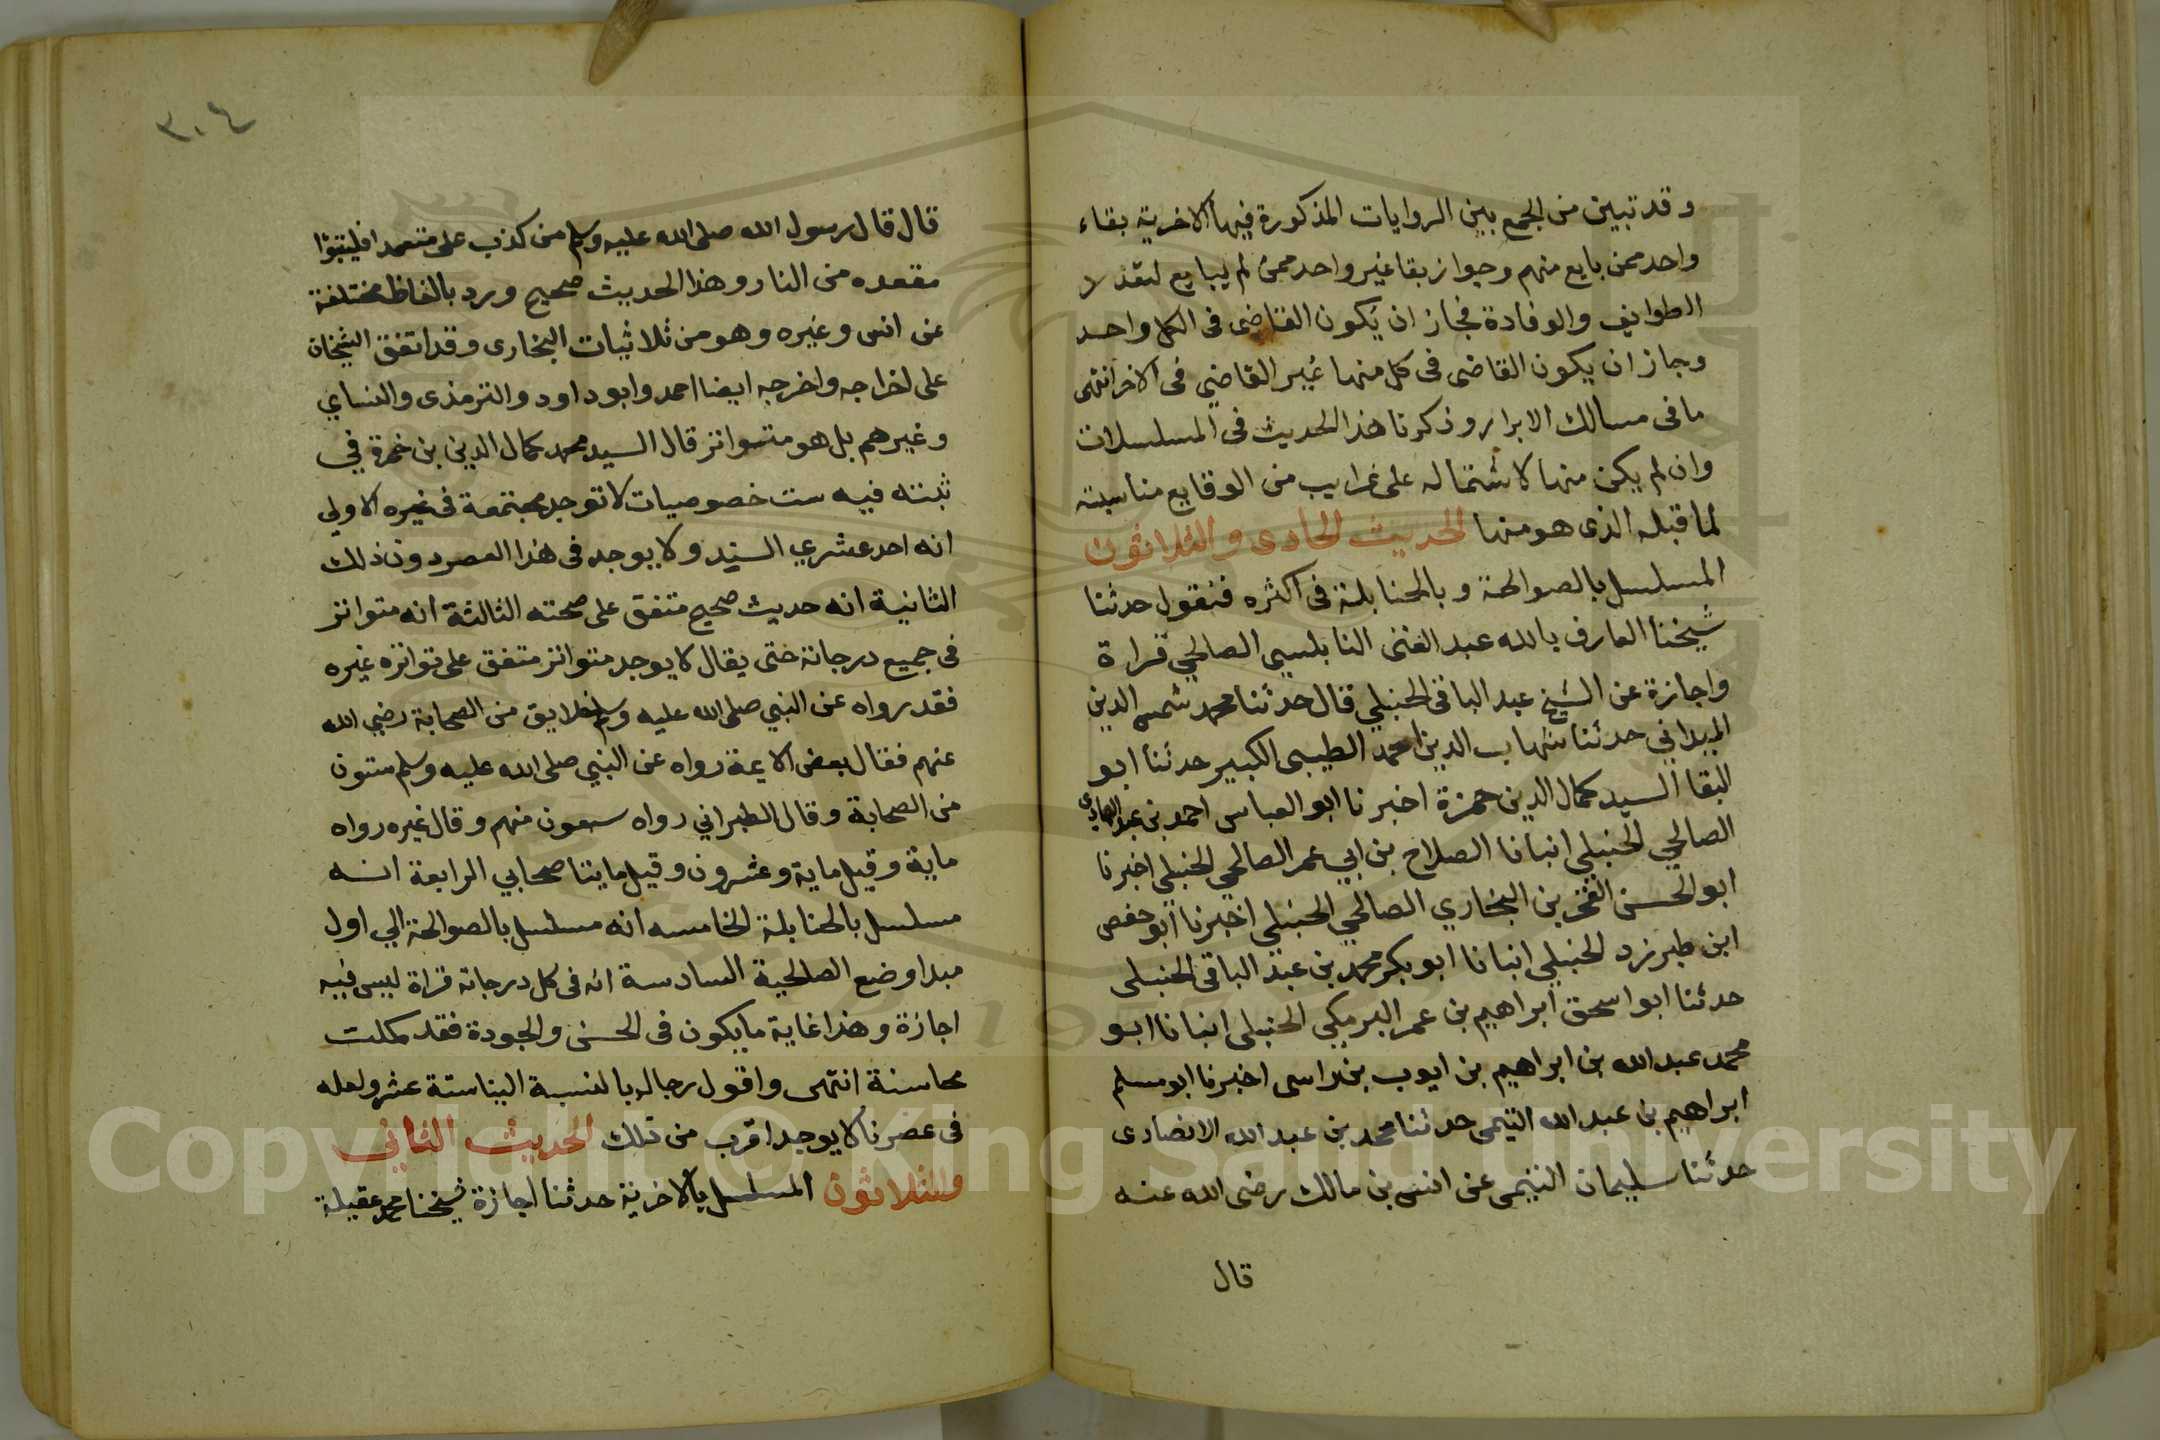 وقد تبين من الجمع بين الروايات المذكورة فيها الاخرية بقاء
واحد ممن بايع منهم وجواز بقا غير واحد ممن لم يبايع لتعدد
الطوايف والوفادة فجاز ان يكون القاضى فى الكل واحد
وجاز ان يكون القاضى فى كل منها غير القاضي فى الاخر انتهى
ما فى مسالك الابرار وذكرنا هذا الحديث فى المسلسلات
وان لم يكن منها لاشتماله على غرايب من الوقايع مناسبته
لما قبله الذى هو منها الحديث الحادى والثلاثون
المسلسل بالصوالحة وبالحنابلة فى اكثره فنقول حدثنا
شيخنا العارف بالله عبد الغنى النابلسي الصالحي قراة
واجازة عن الشيخ عبد الباقى الحنبلي قال حدثنا محمد شمس الدين
الميداني حدثنا شهاب الدين احمد الطيبى الكبير حدثنا ابو
البقا السيد كمال الدين حمزة اخبرنا ابو العباس احمد بن عبد الهادي
الصالحي الحنبلي انبانا الصلاح بن ابي عمر الصالحي الحنبلي اخبرنا
ابو الحسن الفخر بن البخاري الصالحي الحنبلي اخبرنا ابو حفص
ابن طبرزد الحنبلي انبانا ابو بكر محمد بن عبد الباقى الحنبلى
حدثنا ابو اسحق ابراهيم بن عمر البرمكي الحنبلى انبانا ابو
محمد عبد الله بن ابراهيم بن ايوب بن ماسى اخبرنا ابو مسلم
ابراهيم بن عبد الله التيمى حدثنا محمد بن عبد الله الانصارى
حدثنا سليمان التيمى عن انس بن مالك رضى الله عنه
قال
٣٠٤
قال قال رسول الله صلى الله عليه وسلم من كذب على متعمدا فليتبوا
مقعده من النار وهذا الحديث صحيح ورد بالفاظ مختلفة
عن انس وغيره وهو من ثلاثيات البخارى وقد اتفق الشيخان
على اخراجه واخرجه ايضا احمد وابو داود والترمذى والنساي
وغيرهم بل هو متواتر قال السيد محمد كمال الدين بن حمزة في
ثبته فيه ست خصوصيات لا توجد مجتمعة فى غيره الاولي
انه احد عشري السند ولا يوجد فى هذا العصر دون ذلك
الثانية انه حديث صحيح متفق على صحته الثالثة انه متواتر
فى جميع درجاته حتى يقال لا يوجد متواتر متفق على تواتره غيره
فقد رواه عن النبي صلى الله عليه وسلم خلايق من الصحابة رضي الله
عنهم فقال بعض الايمة رواه عن النبي صلى الله عليه وسلم ستون
من الصحابة وقال الطبراني رواه سبعون منهم وقال غيره رواه
ماية وقيل ماية وعشرون وقيل مايتا صحابي الرابعة انه
مسلسل بالحنابلة الخامسه انه مسلسل بالصوالحة الي اول
مبدا وضع الصالحية السادسة انه فى كل درجاته قراة ليس فيه
اجازة وهذا غاية ما يكون فى الحسن والجودة فقد كملت
محاسنة انتهى واقول رجاله بالنسبة الينا ستة عشر ولعله
فى عصرنا لا يوجد اقرب من ذلك الحديث الثاني
والثلاثون المسلسل بالاخرية حدثنا اجازة شيخنا محمد عقيلة
Copyright © King Saud University